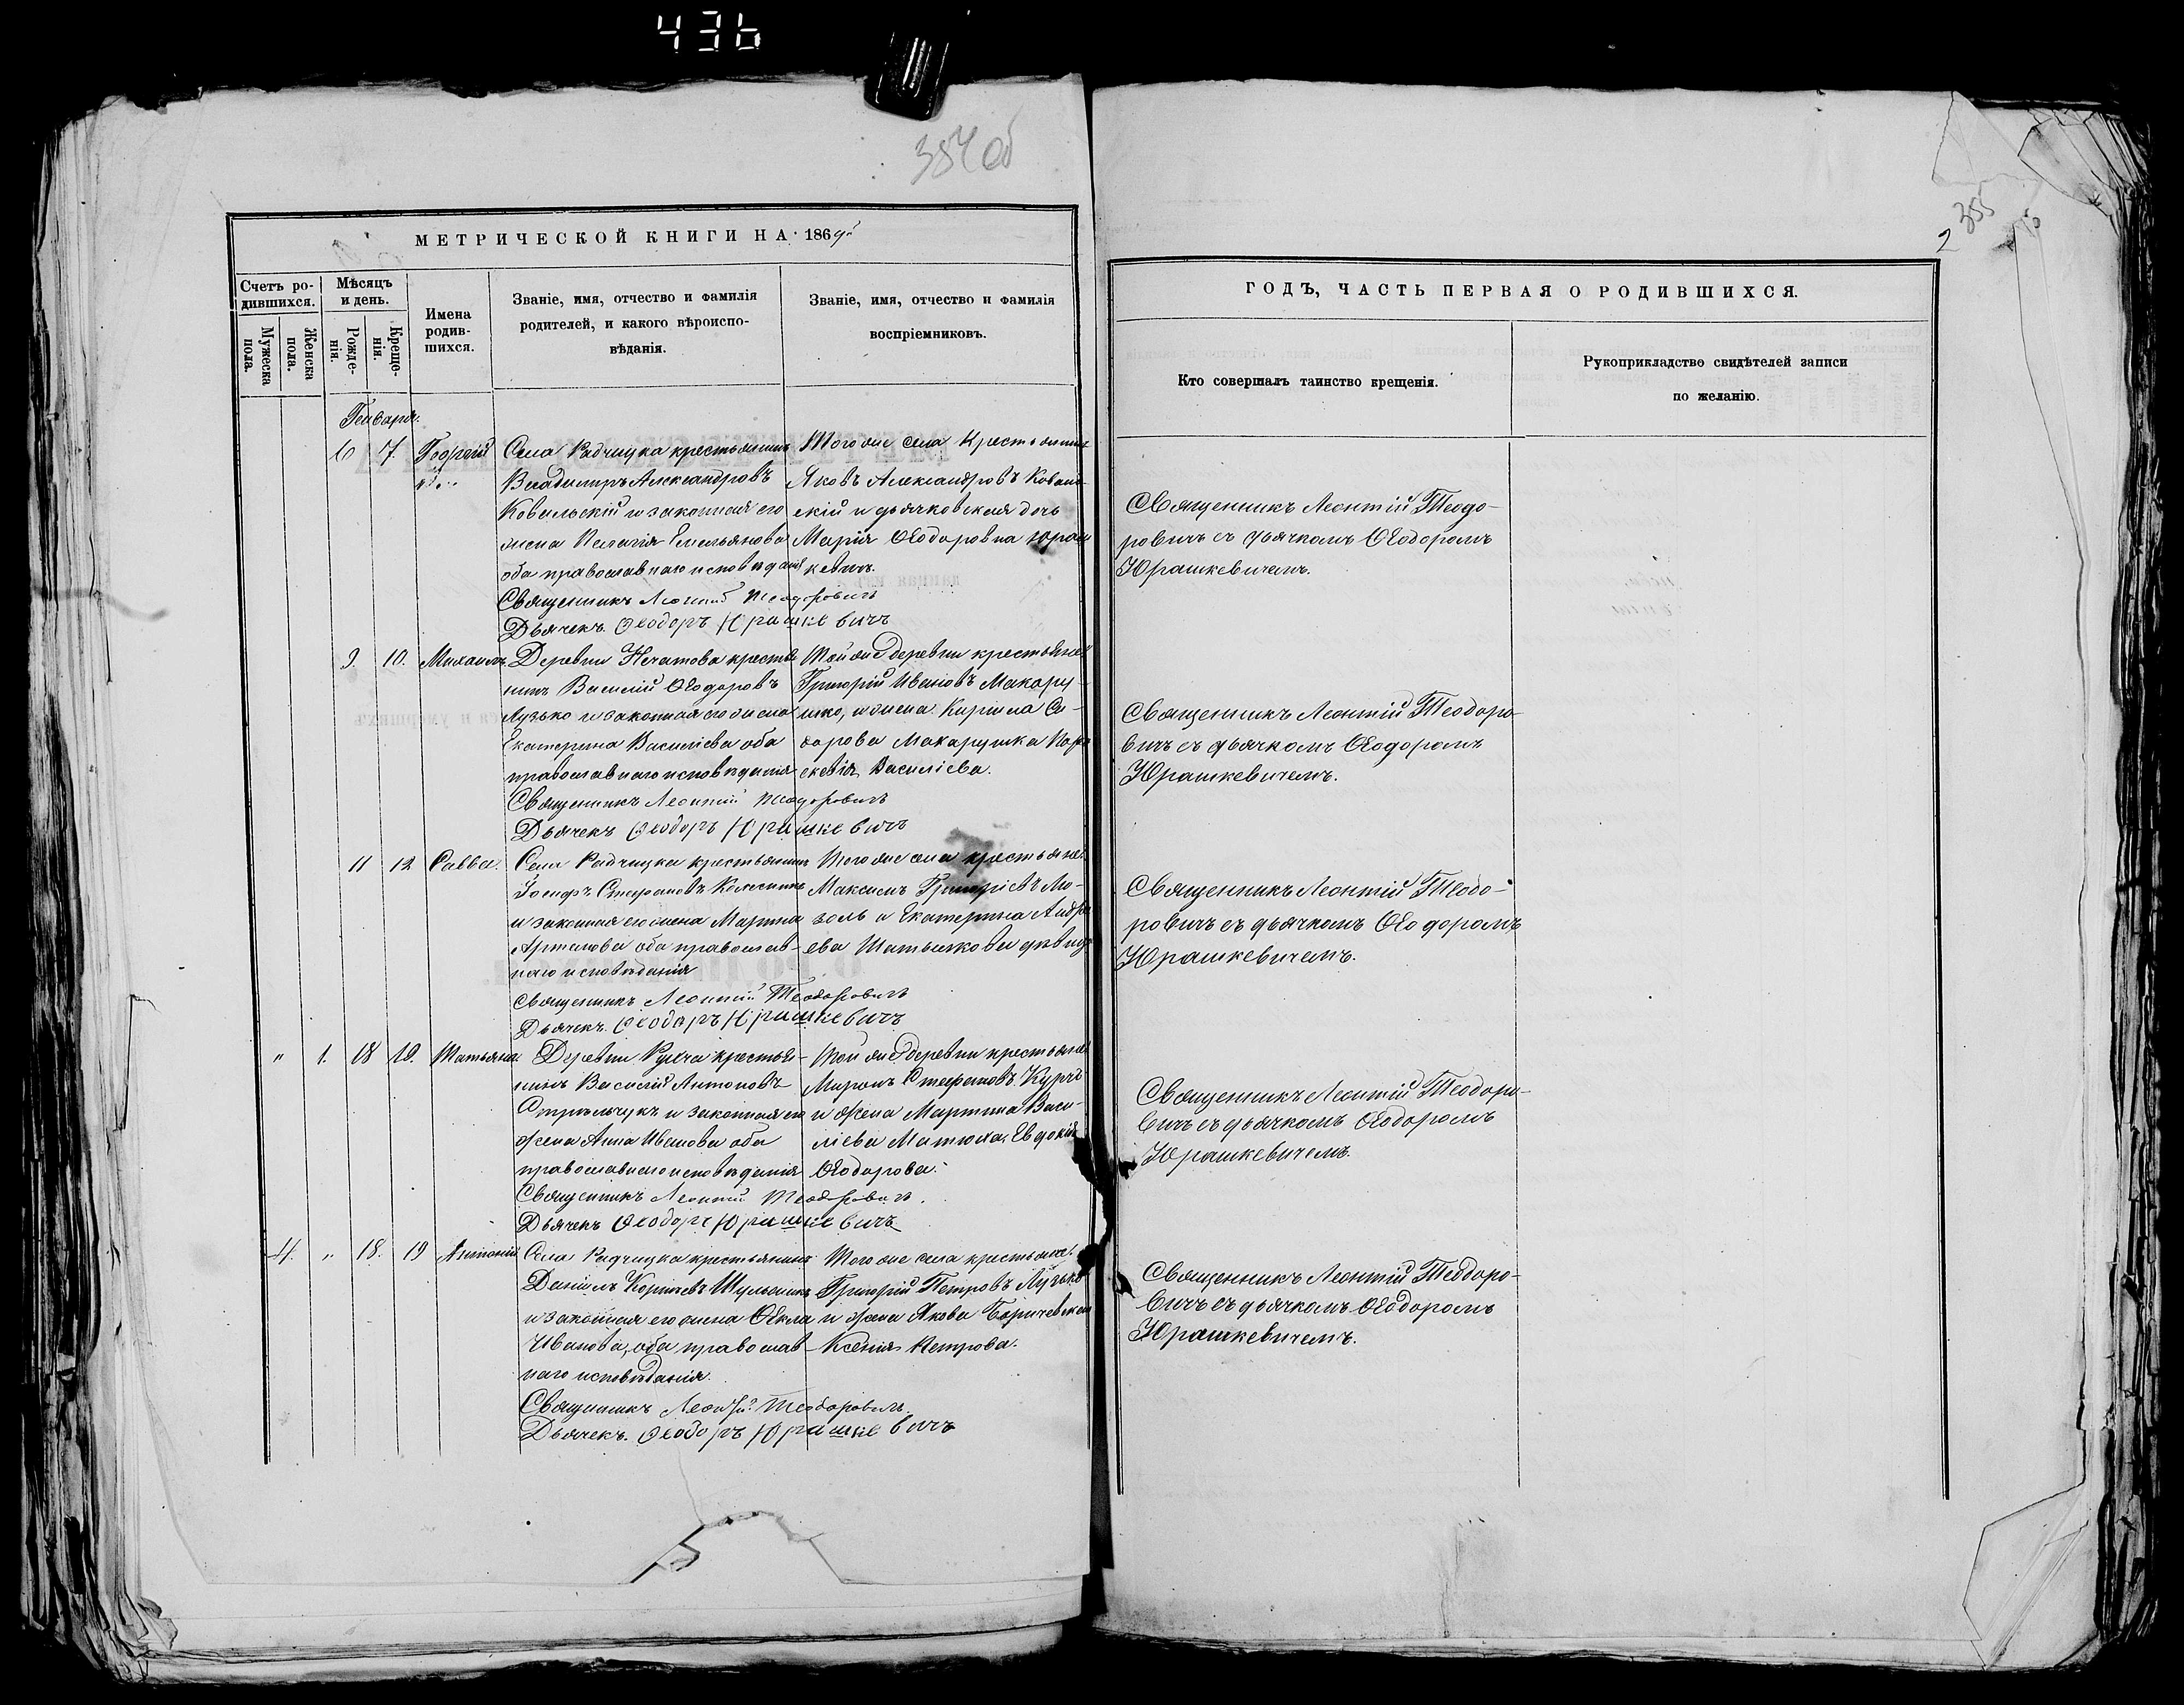 436
354 об
МЕТРИЧЕСКОЙ КНИГИ НА 1869й
Счетъ ро-
дившихся.
Мужеска
пола.
Женска
пола.
Мѣсяцъ
и день.
Рожде-
нія.
Креще-
нія.
Имена
родив-
шихся.
Званіе, имя, отчество и фамилія
родителей, и какого вѣроиспо-
вѣданія.
Званіе, имя, отчество и фамилія
воспріемниковъ.
Генваря.
6 7. Георгій
Села Радчицка крестьянинъ
Владимиръ Александровъ
Ковальскій и законная его
жена Пелагія Емельянова
оба православнаго исповѣданія
Священникъ Леонтій Теодоровичъ
Дьячекъ Ѳеодоръ Юрашкевичъ
Того же села крестьянинъ
Яковъ Александровъ Коваль
скій и дьячковская дочь
Марія Ѳеодоровна Юраш
кевичъ.
9. 10. Михаилъ
Деревни Нечатова крестья
нинъ Василій Ѳеодоровъ
Лузько и законная его жена
Екатерина Василіева оба
православнаго исповѣданія
Священникъ Леонтій Теодоровичъ
Дьячекъ Ѳеодоръ Юрашкевичъ
Той же деревни крестьяне
Григорій Ивановъ Макару-
шко, и жена Кирилла Си-
дорова Макарушка Пара
скевія Василіева.
11 12 Савва.
Села Радчицка крестьянинъ
Іосифъ Стефановъ
и законная его жена Марина
Артемова оба православ-
наго исповѣданія
Священникъ Леонтій Теодоровичъ
Дьячекъ Ѳеодоръ Юрашкевичъ
Того же села крестьяне
Максимъ Григоріевъ Мо-
золь и Екатерина Андре
ева дѣвица
" 1. 18 19. Татьяна
Деревни крестья-
нинъ Василій Антоновъ
Стрѣльчукъ и законная его
жена Анна Иванова оба
православнаго исповѣданія
Священникъ Леонтій Теодоровичъ.
Дьячекъ Ѳеодоръ Юрашкевичъ
Той же деревни крестьяне
Миронъ Стефановъ
и жена Мартина Васи-
ліева Матюха, Евдокія
Ѳеодорова.
4. " 18. 19 Антоній
Села Радчицка крестьянинъ
Даніилъ
и законная его жена Ѳекла
Иванова, оба православ-
наго исповѣданія.
Священникъ Леонтій Теодоровичъ.
Дьячекъ. Ѳеодоръ Юрашкевичъ
Того же села крестьяне
Григорій Петровъ Лузько
и жена Якова Боричевскаго
Ксенія Петрова.
2 355
ГОДЪ, ЧАСТЬ ПЕРВАЯ О РОДИВШИХСЯ.
Кто совершалъ таинство крещенія.
Рукоприкладство свидѣтелей записи
по желанію.
Священникъ Леонтій Теодо-
ровичъ съ дьячкомъ Ѳеодоромъ
Юрашкевичемъ.
Священникъ Леонтій Теодоро-
вичъ съ дьячкомъ Ѳеодоромъ
Юрашкевичемъ.
Священникъ Леонтій Теодо-
ровичъ съ дьячкомъ Ѳеодоромъ
Юрашкевичемъ.
Священникъ Леонтій Теодоро-
вичъ съ дьячкомъ Ѳеодоромъ
Юрашкевичемъ.
Священникъ Леонтій Теодоро-
вичъ съ дьячкомъ Ѳеодоромъ
Юрашкевичемъ.